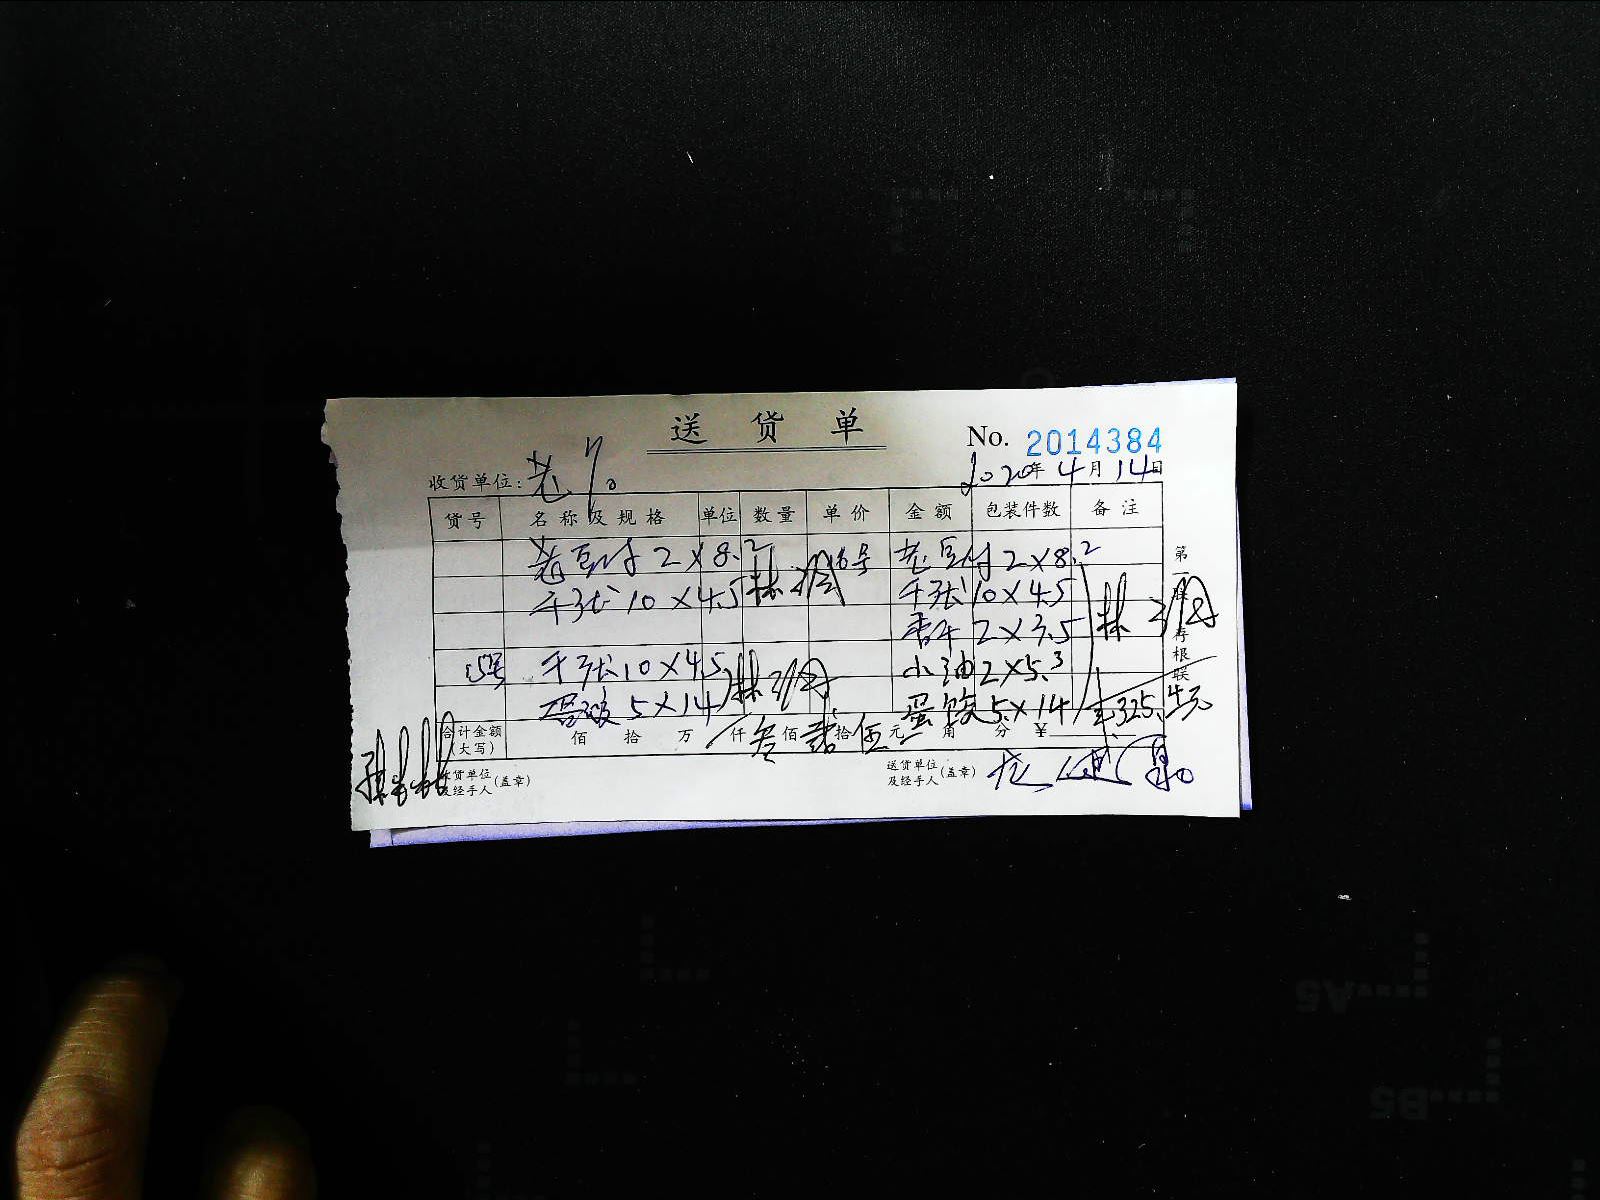 送货单
No. 2014384
收货单位: 老
2020年4月14日
货号 名称及规格 单位 数量 单价 金额 包装件数 备注
老豆付 2×8.2 16号 老豆付 2×8.2
千张 10×4.5 千张 10×4.5
香干 2×3.5
15号 千张 10×4.5 小油 2×5.3
蛋饺 5×14 蛋饺 5×14
325.
合计金额(大写) 佰 拾 万 仟 叁佰 贰拾 伍元 角 分 ¥
收货单位及经手人(盖章)
送货单位及经手人(盖章)
第一联 存根联